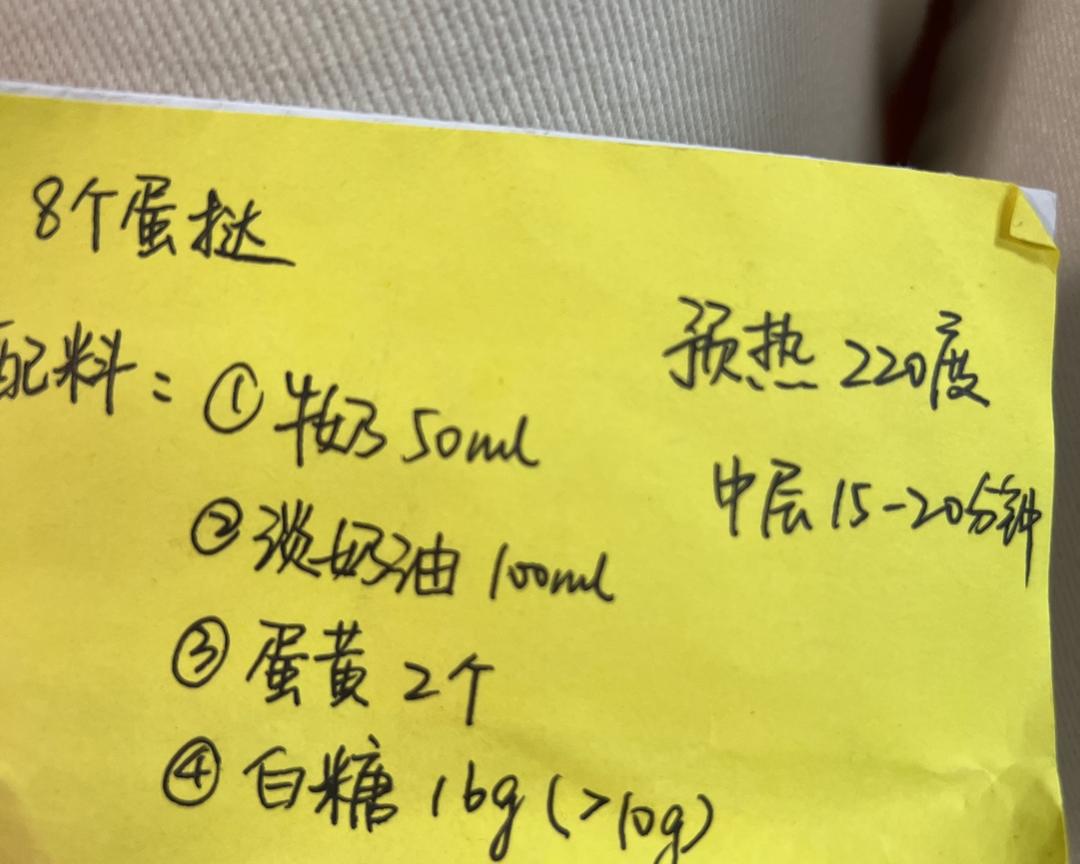 8个蛋挞
配料：① 牛奶 50ml
② 淡奶油 100ml
③ 蛋黄 2个
④ 白糖 16g (>10g)
预热 220度
中层 15-20分钟